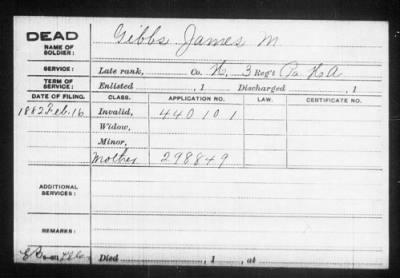 DEAD
NAME OF SOLDIER: Gibbs James M
SERVICE: Late rank, Co. K, 3 Reg't Pa. H A
TERM OF SERVICE: Enlisted , 1 Discharged , 1
DATE OF FILING. CLASS. APPLICATION NO. LAW. CERTIFICATE NO.
1882 Feb. 16 Invalid, 440101
Widow,
Minor,
Mother 298849
ADDITIONAL SERVICES:
REMARKS:
Died , 1 , at